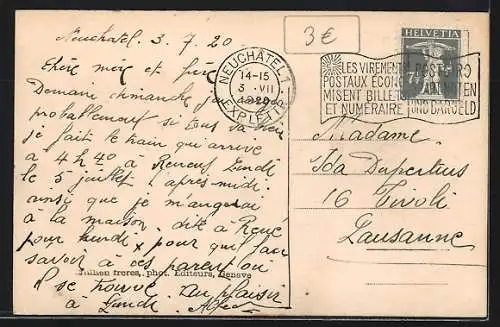 Neuchatel 3.7.20
3€
Chère mère et frère
Demain dimanche je
probablement si tout va bien
je fait le train qui arrive
a 4 h 40 à Renens lundi
le 5 juillet l'après-midi
ainsi que je
à la maison. dite à René
pour lundi x pour qu'il
savoir à ces parent ou
il se trouve. Au plaisir
à Lundi.
NEUCHÂTEL 1
14-15
3 · VII
1920
EXP. LETTR.
HELVETIA
7½
LES VIREMENTS
POSTAUX ÉCONO
MISENT BILLETS
ET NUMÉRAIRE
POSTGIRO
TEN
UND BARGELD
Madame.
Ida Dupertuis
16 Tivoli
Lausanne
freres, phot. Editeurs, Geneve